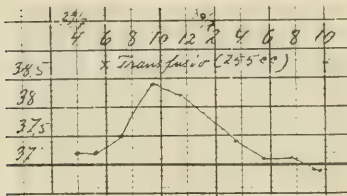 4 6 8 10 12 2 4 6 8 10
38.5 x Transfusio (255cc)
38
37.5
37